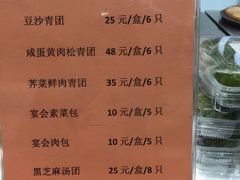 豆沙青团 25 元/盒/6 只
咸蛋黄肉松青团 48 元/盒/6 只
荠菜鲜肉青团 35 元/盒/6 只
宴会素菜包 10 元/盒/5 只
宴会肉包 10 元/盒/5 只
黑芝麻汤团 25 元/盒/8 只